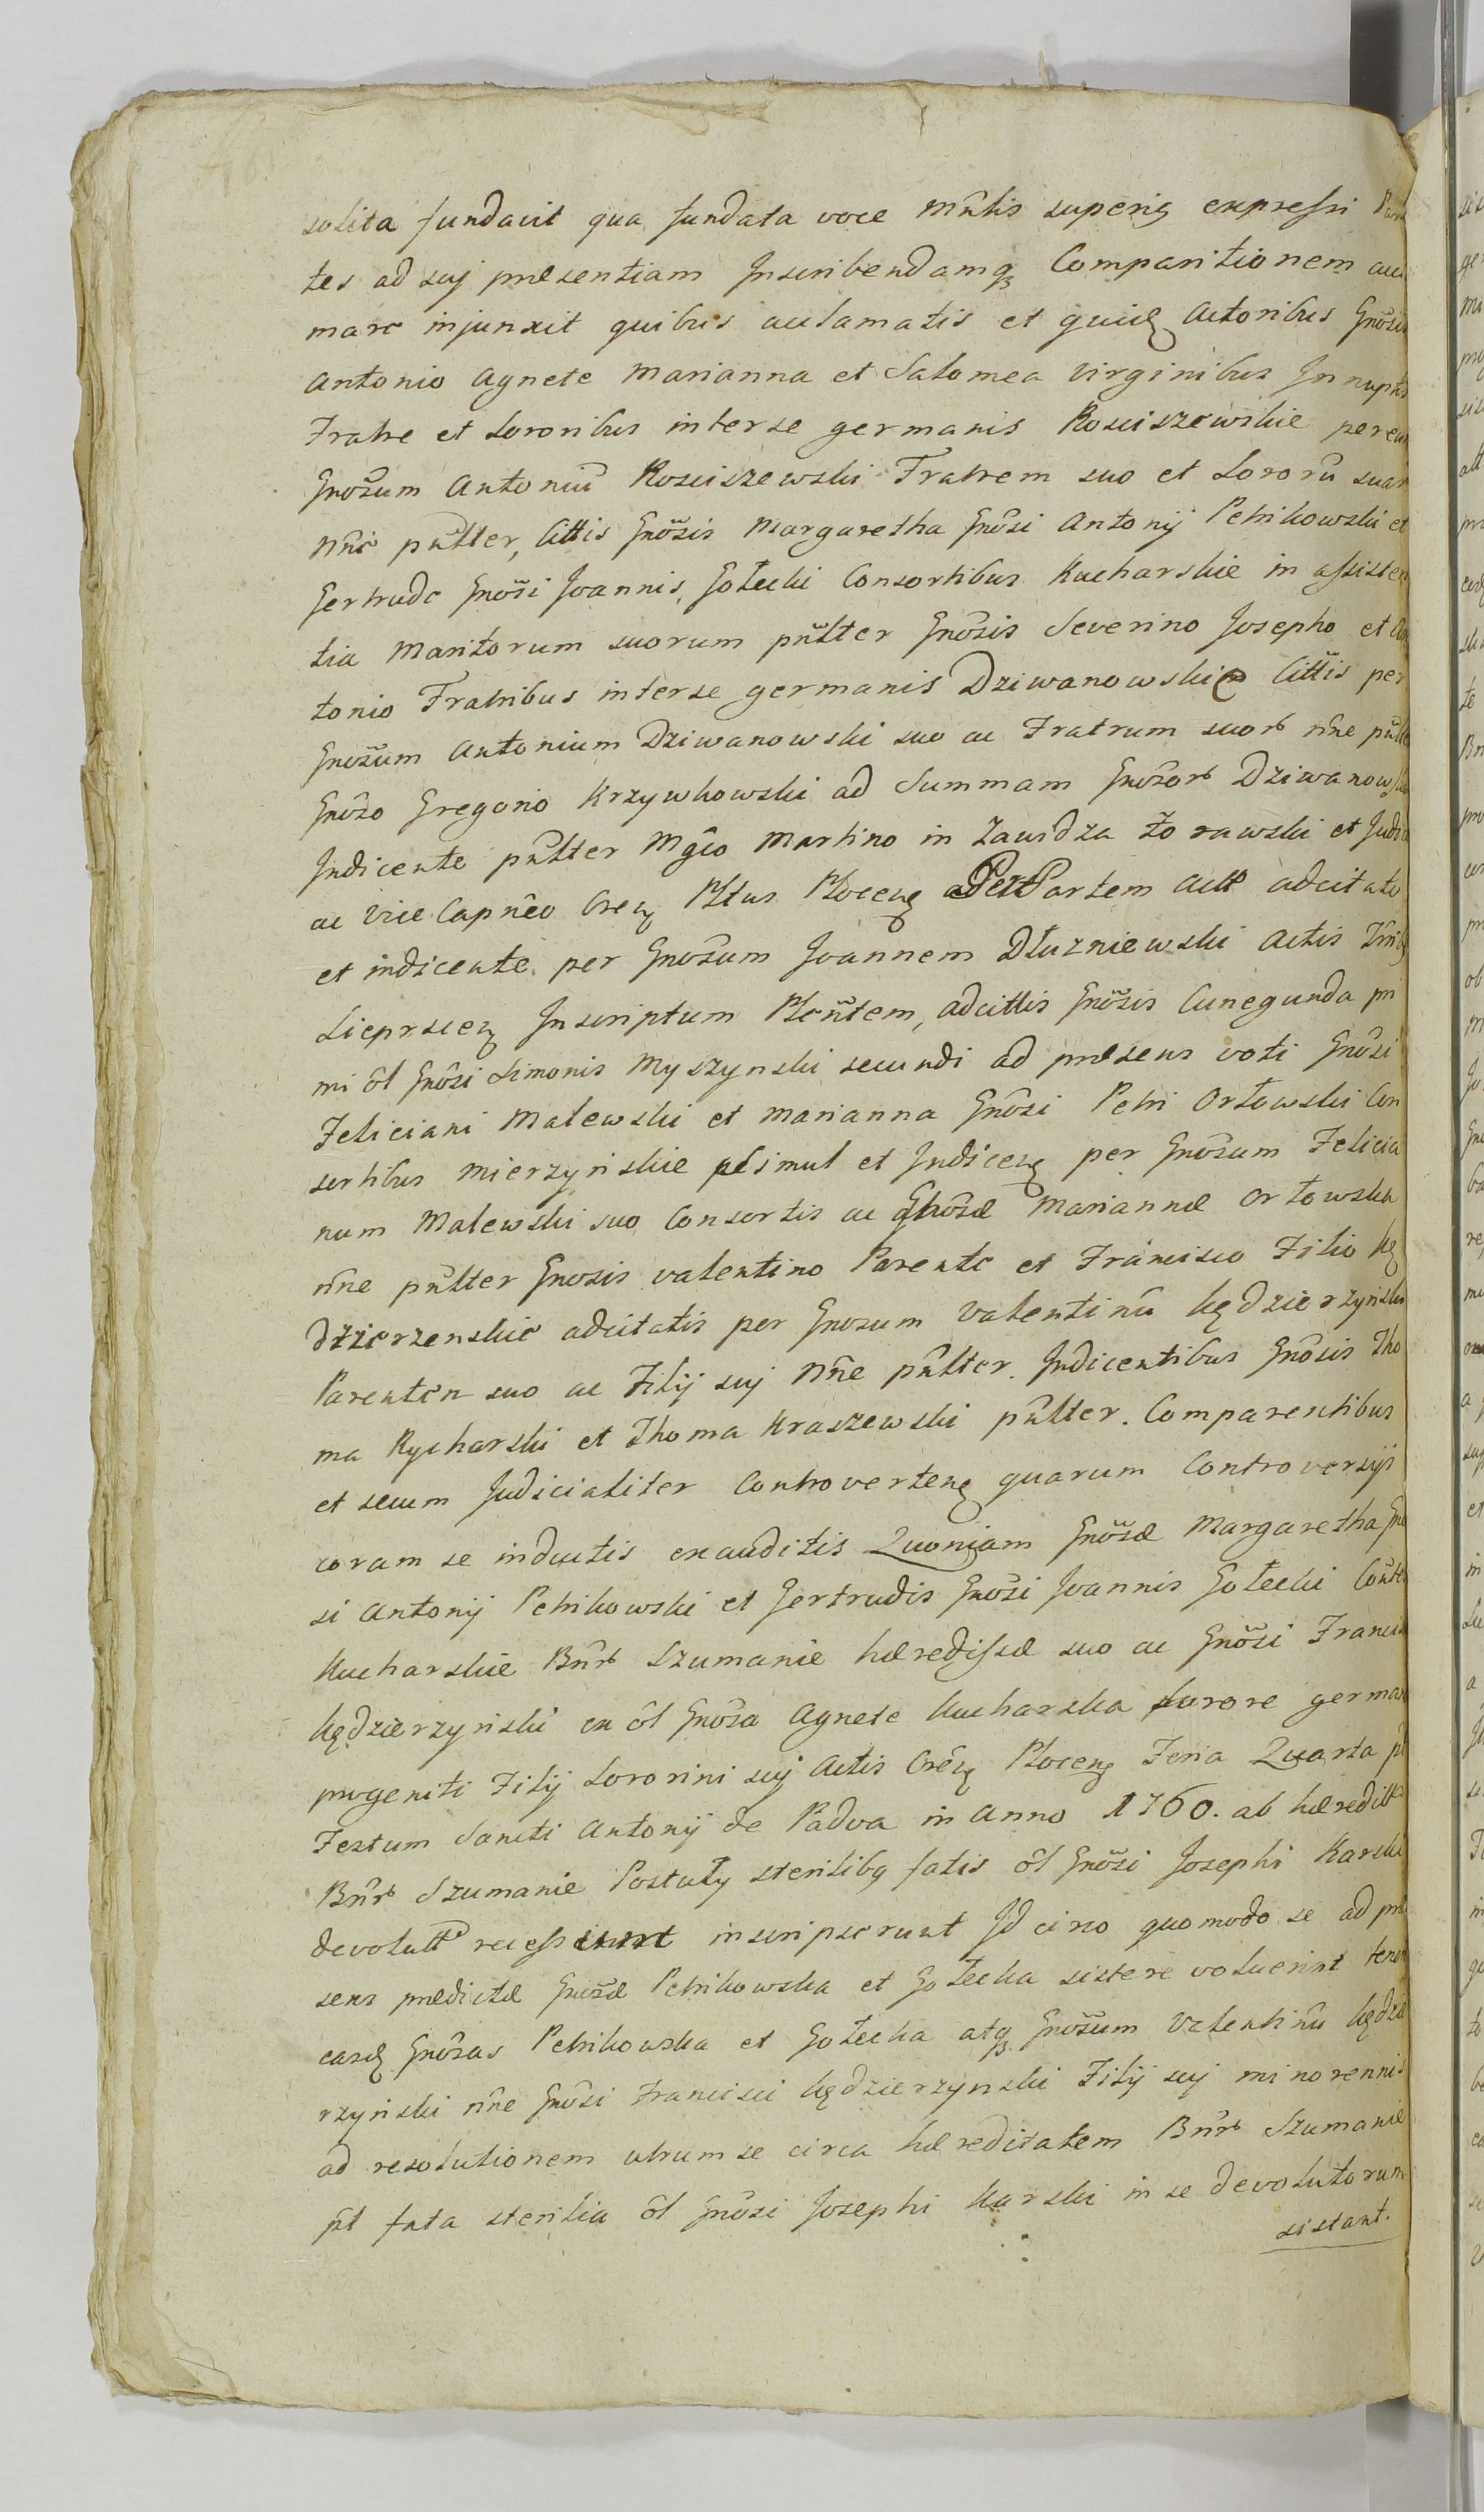 solita fundavit qua fundata voce Mntis superig expressi Par
tes ad suj præsentiam Inscribendamq Comparitionem acc
mare injunxit quibus aclamatis et quid Actoribus Gnosis
Antonio Agnete Marianna et Salomea Virginibus Innuptis
Fratre et Sororibus interse germanis Kosciszewskie per eun
Gnosum Antoniũ Kosciszewski Fratrem suo et Sororũ suar
nñe pnlter, Cittis Gnosis Margaretha Gnosi Antonij Petrikowski et
Gertrude Gnosi Joannis Gołecki Consortibus Kucharskie in assisten
tia Maritorum suorum pnlter Gnosis Severino Josepho et An
tonio Fratribus interse germanis Dziwanowskie Cittis per
Gnosum Antonium Dziwanowski suo ac Fratrum suor nñe pnlter
Gnoso Gregorio Krzywkowski ad Summam Gnosor Dziwanowskie
Indicente pnlter Mgco Martino in Zawidza Żorawski et Judice
ac Vice Capneo Cren Pltus Plocen ad Partem Act adcitato
et indicente per Gnosum Joannem Dłuzniewski Actis Trnib
Sieprscen Inscriptum Plentem, adcittis Gnosis Cunegunda pri
mi ol Gnosi Simonis Myszynski secundi ad præsens voti Gnosi
Feliciani Malewski et Marianna Gnosi Petri Orłowski Con
sortibus Mierzynskie simul et Indicen per Gnosum Felicia
num Malewski suo Consortis ac Gnosæ Mariannæ Orłowska
nñe pnlter Gnosis Valentino Parente et Francisco Filio Kę
dzierzenskie adcitatis per Gnosum Valentinũ Kędzierzynski
Parentem suo ac Filij suj Nñe pnlter. Indicentibus Gnosis Tho
ma Rycharski et Thoma Kraszewski pnlter. Comparentibus
et secum Judicialiter Controverten quarum Controversijs
coram se inductis exauditis Quoniam Gnosæ Margaretha Gno
si Antonij Petrikowski et Gertrudis Gnosi Joannis Gołecki Contes
Kucharskie Bnr Szumanie hæredissæ suo ac Gnosi Francisci
Kędzierzynski ex ol Gnosa Agnete Kucharska sorore germana
progeniti Filij Sororini suj Actis Cren Plocen Feria Quarta pt
Festum Sancti Antonij de Padva in Anno 1760. ab hæreditte
Bnr Szumanie Postaty sterilibq fatis ol Gnosi Josephi Karski
devolutt recesserunt inscripserunt Id circo quomodo se ad præ
sens prædictæ Gnosæ Petrikowska et Gołecka sistere voluerint tenen
easd Gnosas Petrikowska et Gołecka atq Gnosum Valentinũ Kędzie
rzynski nñe Gnosi Francisci Kędzierzynski Filij suj minorennis
ad resolutionem utrum se circa hæreditatem Bnr Szumanie
pt fata sterilia ol Gnosi Josephi Karski in se devolutorum
sistant.